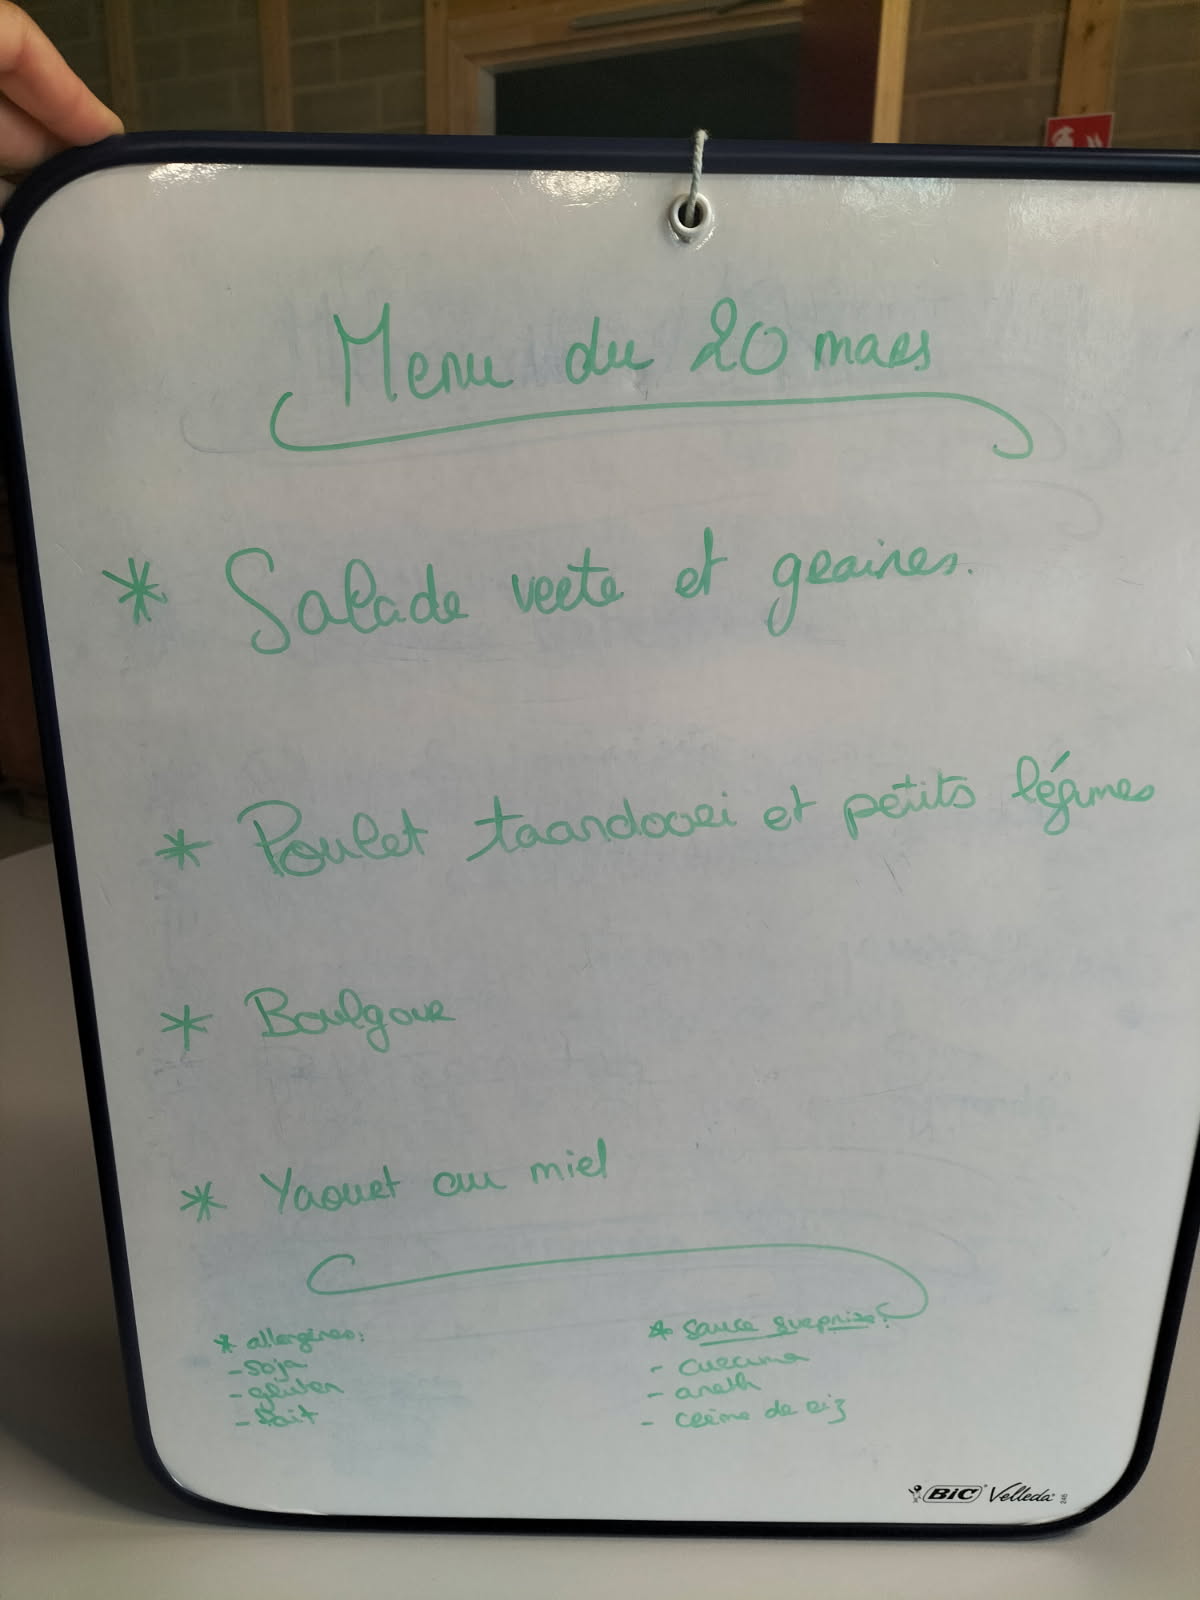 Menu du 20 mars
* Salade verte et graines.
* Poulet taandoori et petits légumes
* Boulgour
* Yaourt au miel
* allergènes:
- soja
- gluten
- lait
* sauce surprise:
- curcuma
- aneth
- crème de riz
BIC Velleda